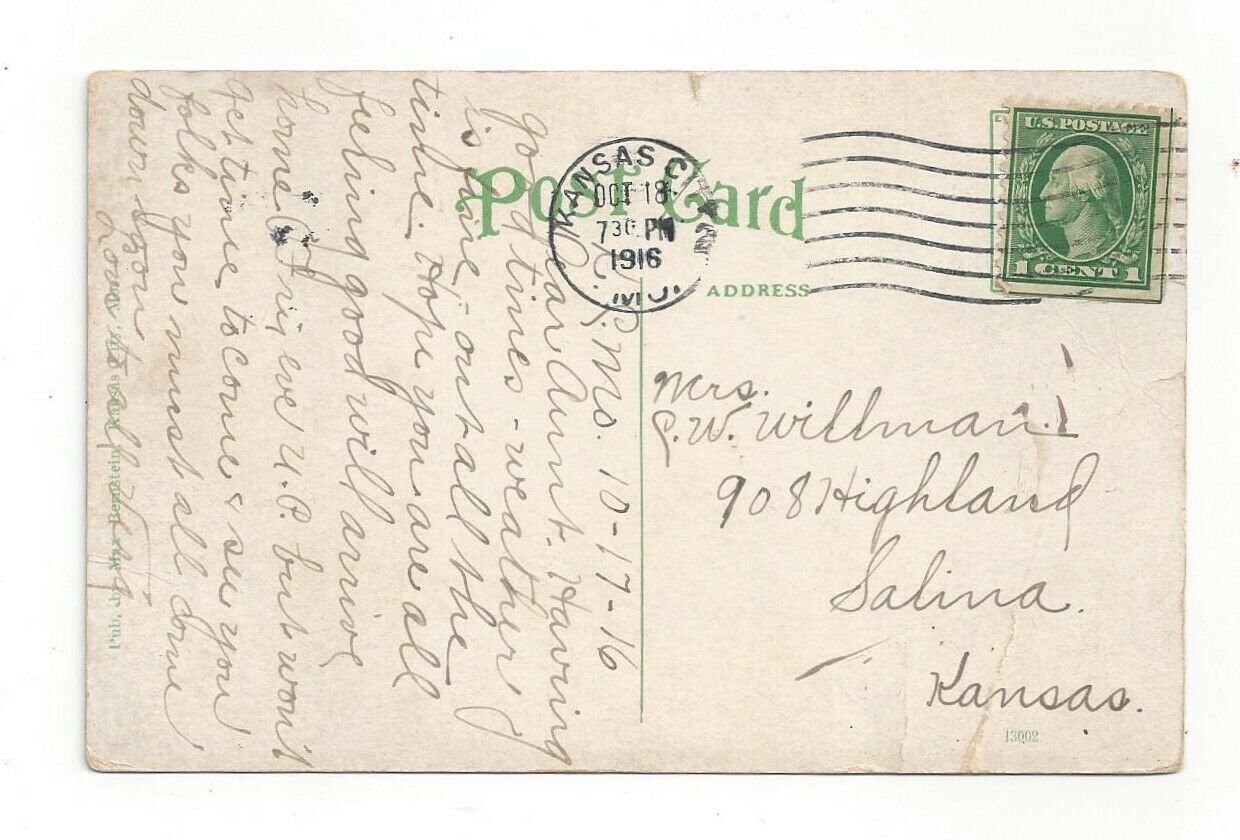 Post Card
KANSAS CITY
OCT 18
730 PM
1916
MO.
U.S. POSTAGE
1 CENT 1
ADDRESS
Mrs.
C. W. Willman.
908 Highland
Salina.
Kansas.
13002
K. C. Mo. 10-17-16
Dear Aunt. Having
good times - weather
is fine, - out all the
time. Hope you are all
feeling good will arrive
home Fri, eve U.P. but won't
get time to come & see you
folks you must all come
down soon
Love to all
Pub. by Max Bernstein, Kansas City, Mo.